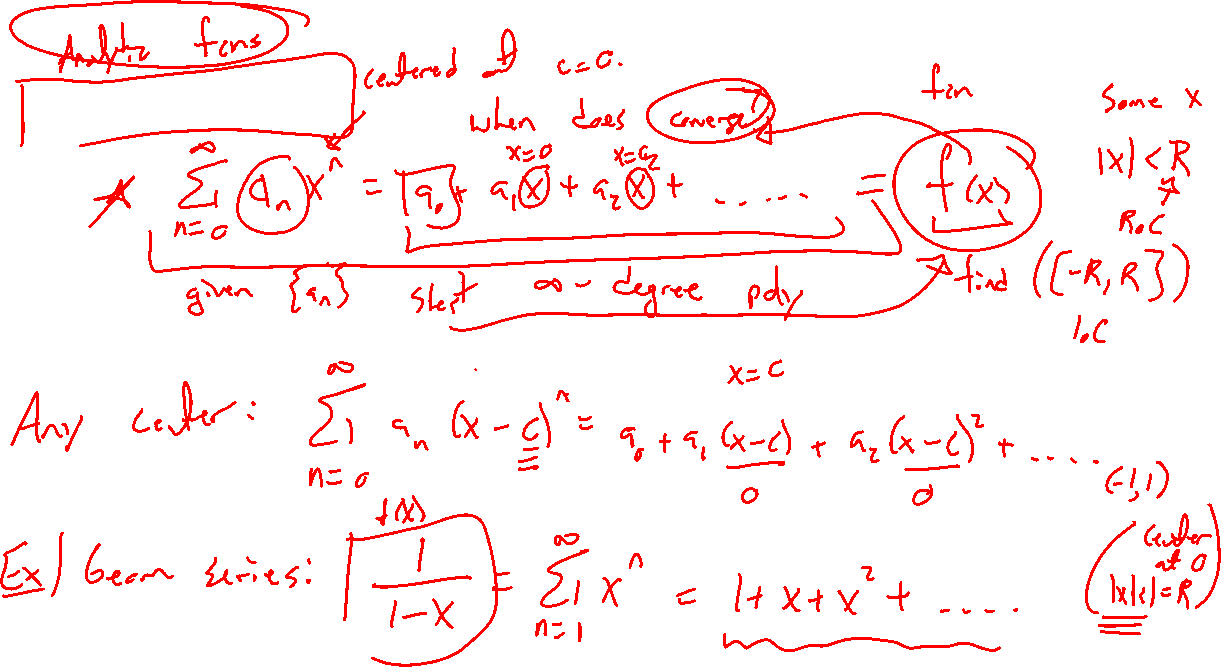 Analytic fcns
centered at c=0.
when does converge
fcn
Some x
x=0
∑_{n=0}^{∞} a_n x^n = a_0 + a_1 x + a_2 x + ...... = f(x)
|x| < R
R.O.C
given {a_n} start ∞-degree poly
find ([-R, R])
I.C
x=c
Any center: ∑_{n=0}^{∞} a_n (x-c)^n = a_0 + a_1 (x-c) + a_2 (x-c)^2 + ....
0 0
(-1,1)
f(x)
Ex) Geom series: 1/(1-x) = ∑_{n=1}^{∞} x^n = 1+x+x^2+ ....
center
at 0
|x|<1=R